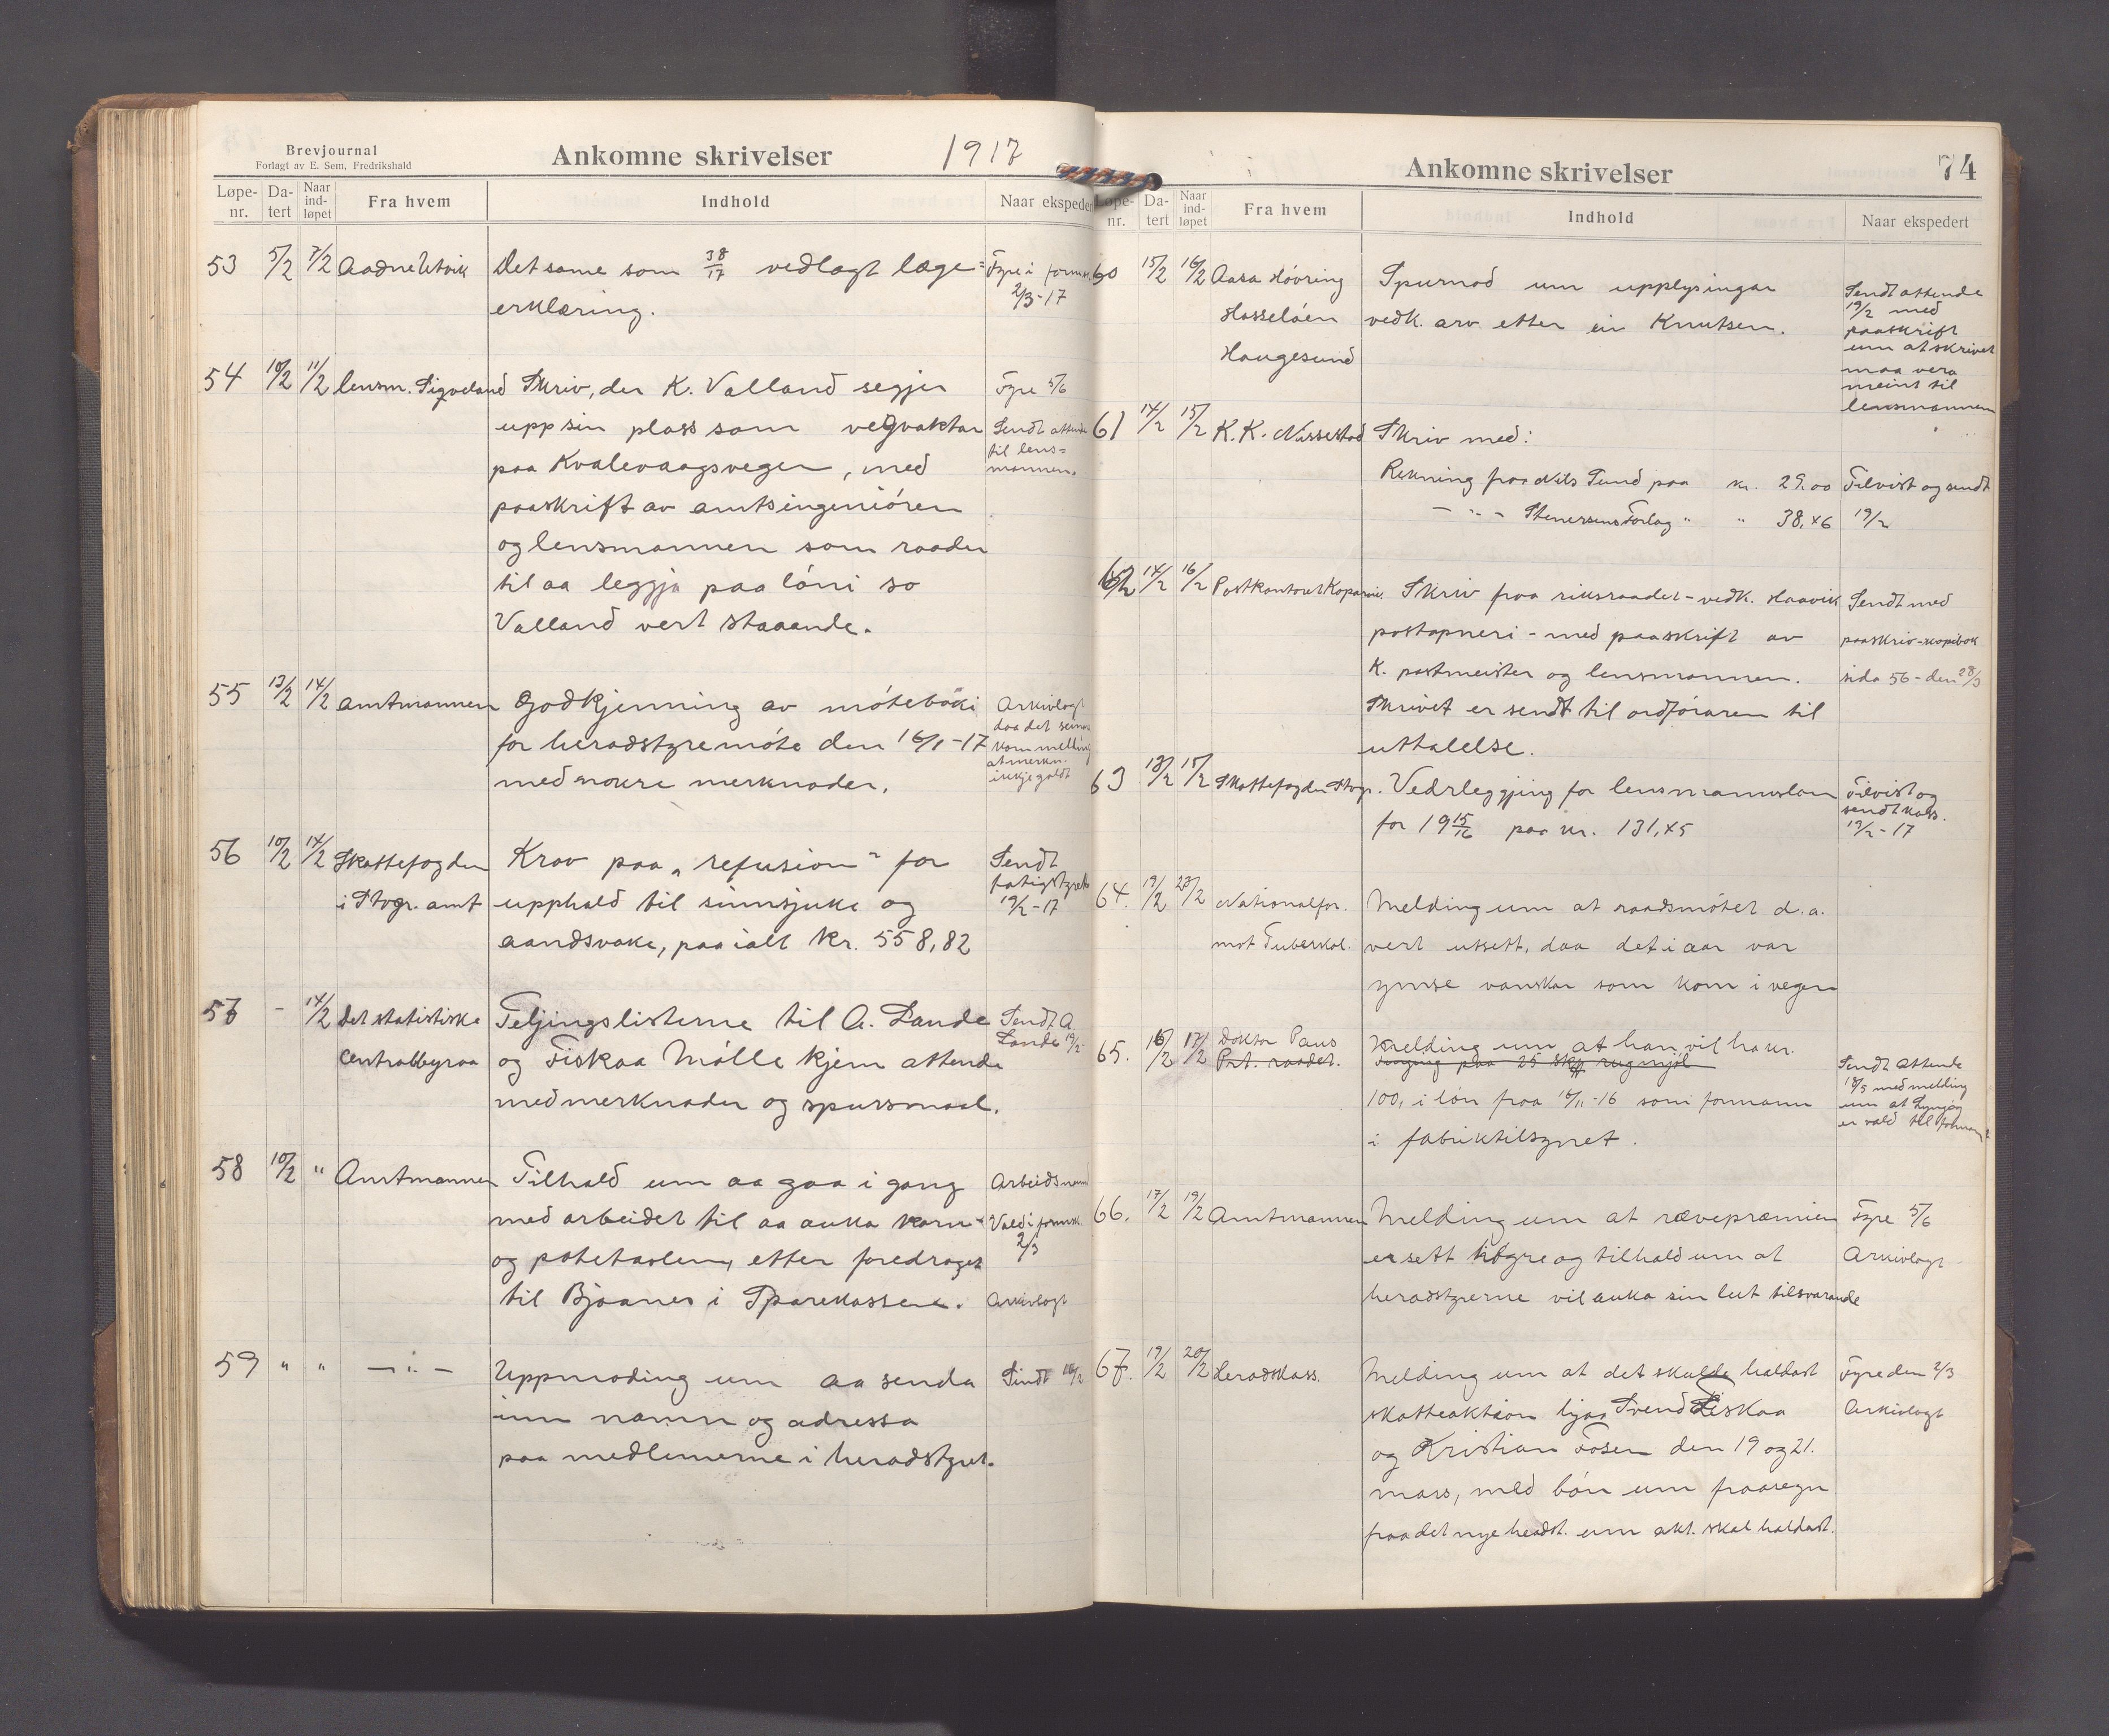 Brevjournal
Forlagt av E. Sem, Fredrikshald
Ankomne skrivelser
1917
Løpe-nr.
Da-tert
Naar ind-løpet
Fra hvem
Indhold
Naar ekspedert
53 5/2 7/2 Aadne Utvik Det same som 38/17 vedlagt læge= Fyre i formsk.
erklæring. 2/3-17
54 10/2 11/2 lensm. Sigveland Skriv, der K. Valland segjer Fyre 5/6
upp sin plass som vegvaktar Sendt attende
paa Kvalevaagsvegen, med til lens=
mannen.
paaskrift av amtsingeniören
og lensmannen som raader
til aa leggja paa löni so
Valland vert staaande.
55 13/2 14/2 Amtmannen Godkjenning av möteboki Arkivlagt
for heradstyremöte den 16/1-17 daa det seinare
kom melding
med nokre merknader. at merkn.
ikkje galdt
56 10/2 14/2 Skattefogden Krav paa "refusion" for Sendt
i Stvgr. amt upphald til sinnsjuke og fatigstyret
19/2-17
aandsvake, paa ialt kr. 558,82
57 - 14/2 Det statistiske Teljingslisterne til A. Lande Sendt A.
Lande 19/2
Centralbyraa og Fiskaa Mölle kjem attende
med merknader og spursmaal.
58 10/2 " Amtmannen Tilhald um aa gaa i gang Arbeidsnemd
med arbeidet til aa auka korn- Vald i formsk.
2/3
og potetavlen, etter foredraget
til Bjaanes i Sparekassene. Arkivlagt
59 " " — " — Uppmoding um aa senda Sendt 16/2
inn namn og adressa
paa medlemerne i heradstyret.
Ankomne skrivelser
74
Løpe-nr.
Da-tert
Naar ind-løpet
Fra hvem
Indhold
Naar ekspedert
60 15/2 16/2 Aasa Hövring Spurnad um upplysingar Sendt attende
19/2 med
Hasselöen vedk. arv etter ein Knutsen. paaskrift
um at skrivet
Haugesund maa vera
meint til
lensmannen
61 14/2 15/2 K. K. Nassestad Skriv med:
Rekning fraa Nils Sund paa kr. 29.00 Tilvist og sendt
— " — Stenersens Forlag " " 38,46 19/2
62 14/2 16/2 Postkontoret Kopervik. Skriv fraa riksraadet - vedk. Haavik Sendt med
postopneri - med paaskrift av paaskriv - kopibok
K. postmeister og lensmannen. sida 56 - den 28/3
Skrivet er sendt til ordföraren til
uttalelse.
63 13/2 15/2 Skattefogden Stvgr. Vedrleggjing for lensmannslön Tilvist og
sendt kass.
for 19 15/16 paa kr. 131,45 19/2-17
64. 19/2 23/2 Nationalfor. Melding um at raadsmötet d.a.
mot Tuberkol. vert utsett, daa det i aar var
ymse vanskar som kom i vegen
65. 16/2 17/2 Doktor Paus Melding um at han vil ha kr.
Prt. raadet. paa 25 skp rugmjöl Sendt attende
18/5 med melding
100, i lön fraa 16/11-16 som formann um at
er vald til formann
i fabriktilsynet.
66. 17/2 19/2 Amtmannen Melding um at rævepræmien Fyre 5/6
er sett högre og tilhald um at Arkivlagt
heradstyrerne vil auka sin lut tilsvarande
67. 19/2 20/2 Heradskass. Melding um at det skulde haldast Fyre den 2/3
skatteaktion hjaa Svend Fiskaa Arkivlagt
og Kristian Fosen den 19 og 21.
mars, med bön um fraasegn
fraa det nye heradst. um akt. skal haldast.